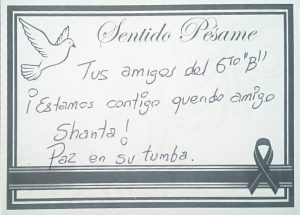 Sentido Pésame
Tus amigos del 6TO "B"
¡Estamos contigo querido amigo
Shanta!
Paz en su tumba.